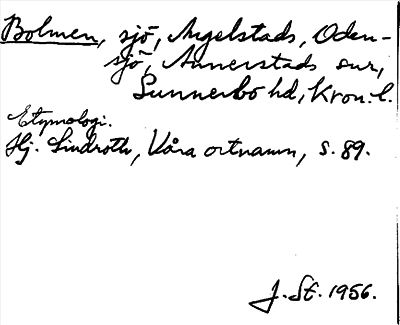 Bolmen, sjö, Angelstads, Oden-
sjö, Annerstads snr,
Sunnerbo hd, Kron. l.
Etymologi.
Hj. Lindroth, Våra ortnamn, s. 89.
J. St. 1956.